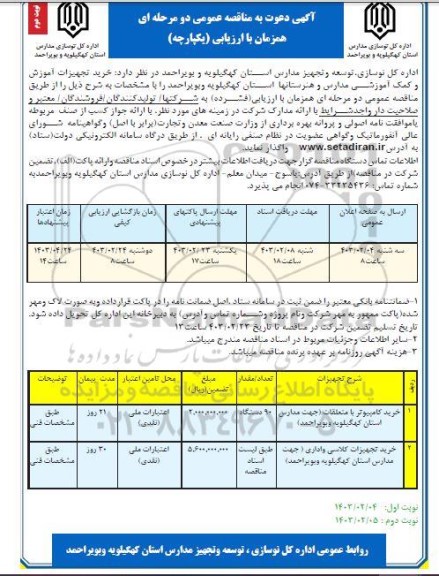 نوبت دوم
آگهی دعوت به مناقصه عمومی دو مرحله ای
همزمان با ارزیابی (یکپارچه)
اداره کل نوسازی مدارس
استان کهگیلویه و بویراحمد
اداره کل نوسازی مدارس
استان کهگیلویه و بویراحمد
اداره کل نوسازی،توسعه وتجهیز مدارس اســتان کهگیلویه و بویراحمد در نظر دارد: خرید تجهیزات آموزش
و کمک آموزشــی مدارس و هنرستانها استان کهگیلویه وبویراحمد را با مشخصات به شرح ذیل را از طریق
مناقصه عمومی دو مرحله ای همزمان با ارزیابی(فشرده) به شرکتها/ تولیدکنندگان/فروشندگان/ معتبر و
صلاحیت دار واجدشـرایط با ارائه مدارک شرکت در زمینه های مورد نظر، با ارائه جواز کسب از صنف مربوطه
یاموافقت نامه اصولی و پروانه بهره برداری از وزارت صنعت معدن و تجارت(برابر با اصل) وگواهینامه شورای
عالی آنفورماتیک وگواهی عضویت در نظام صنفی رایانه ای . از طریق درگاه سامانه الکترونیکی دولت(ستاد)
به آدرس www.setadiran.ir واگذار نمایند.
اطلاعات تماس دستگاه مناقصه گزار جهت دریافت اطلاعات بیشتر در خصوص اسناد مناقصه وارائه پاکت(الف)، تضمین
شرکت در مناقصه:از طریق آدرس:یاسوج- میدان معلم - اداره کل نوسازی مدارس استان کهگیلویه وبویراحمدبه
شماره تماس: ۳۳۲۳۵۴۳۶-۰۷۴ انجام می پذیرد.
ارسال به صفحه اعلان عمومی | مهلت دریافت اسناد | مهلت ارسال پاکتهای پیشنهادی | زمان بازگشایی ارزیابی کیفی | زمان اعتبار پیشنهادها
سه شنبه ۴۰۳/۰۲/۰۴ ساعت۸ | شنبه ۴۰۳/۰۲/۰۸ ساعت۱۸ | یکشنبه ۴۰۳/۰۲/۲۳ ساعت۱۷ | دوشنبه ۴۰۳/۰۲/۲۴ ساعت۸ | ۱۴۰۳/۰۴/۲۴ ساعت۱۴
۱-ضمانتنامه بانکی معتبر را ضمن ثبت در سامانه ستاد .اصل ضمانت نامه را در پاکت قرارداده وبه صورت لاک ومهر
شده(پاکت ممهور به مهر شرکت ونام پروژه وشــماره تماس وادرس) به دبیرخانه این اداره کل تحویل داده شود.
تاریخ تسلیم تضمین شرکت در مناقصه تا تاریخ ۴۰۳/۰۲/۲۳ ساعت۱۳
۲-سایر اطلاعات وجزئیات مربوط در اسناد مناقصه مندرج میباشد.
۳-هزینه آگهی روزنامه بر عهده برنده مناقصه میباشد.
ردیف | شرح تجهیزات | تعداد/مقدار | مبلغ تضمین(ریال) | محل تامین اعتبار | مدت پیمان | توضیحات
۱ | خرید کامپیوتر با متعلقات (جهت مدارس استان کهگیلویه وبویراحمد) | ۹۰ دستگاه | ۲,۰۰۰,۰۰۰,۰۰۰ | اعتبارات ملی (نقدی) | ۲۱ روز | طبق مشخصات فنی
۲ | خرید تجهیزات کلاسی واداری ( جهت مدارس استان کهگیلویه وبویراحمد) | طبق لیست اسناد مناقصه | ۵,۶۰۰,۰۰۰,۰۰۰ | اعتبارات ملی (نقدی) | ۳۰ روز | طبق مشخصات فنی
نوبت اول: ۱۴۰۳/۰۲/۰۴
نوبت دوم : ۱۴۰۳/۰۲/۰۵
روابط عمومی اداره کل نوسازی ، توسعه وتجهیز مدارس استان کهگیلویه وبویراحمد